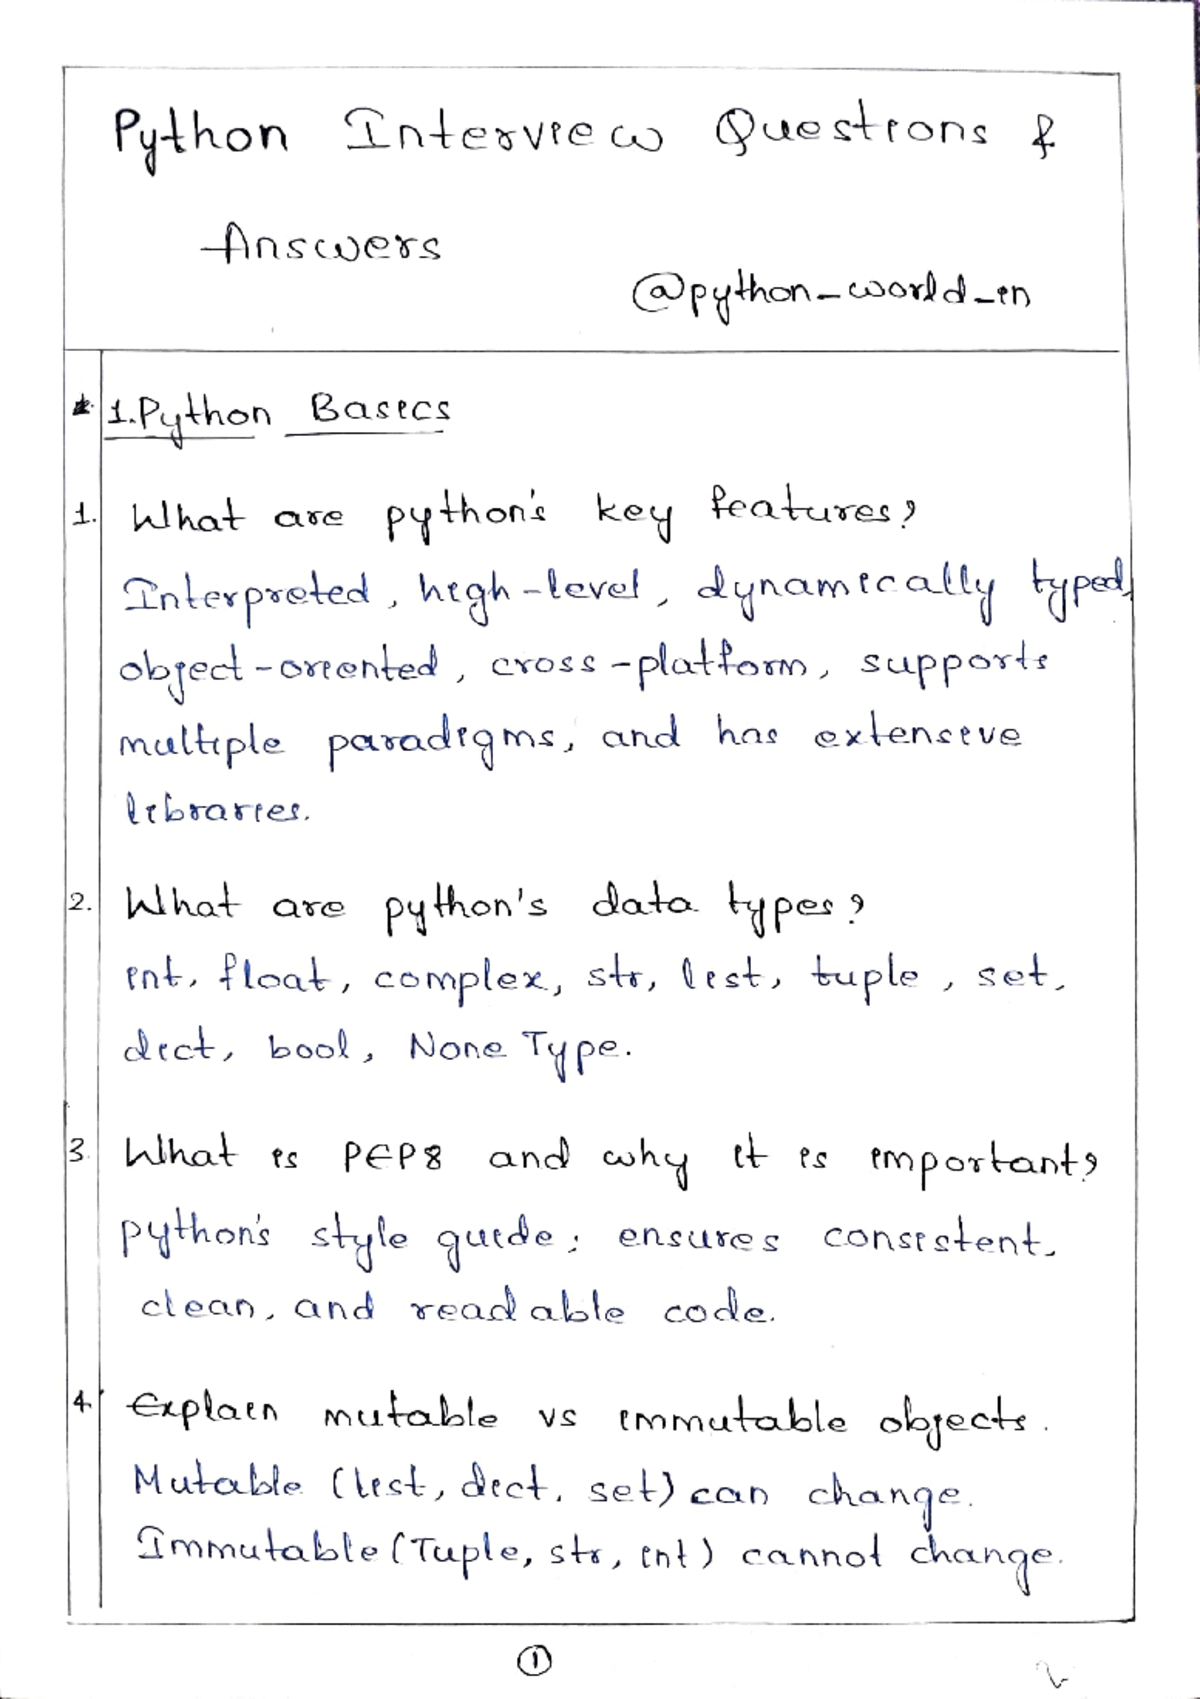 Python Interview Questions &
Answers
@python_world_in
* 1.Python Basics
1. What are python's key features?
Interpreted, high-level, dynamically typed,
object-oriented, cross-platform, supports
multiple paradigms, and has extensive
libraries.
2. What are python's data types?
int, float, complex, str, list, tuple, set,
dict, bool, None Type.
3. What is PEP8 and why it is important?
python's style guide; ensures consistent,
clean, and readable code.
4. Explain mutable vs immutable objects.
Mutable (list, dict, set) can change.
Immutable (Tuple, str, int) cannot change.
1